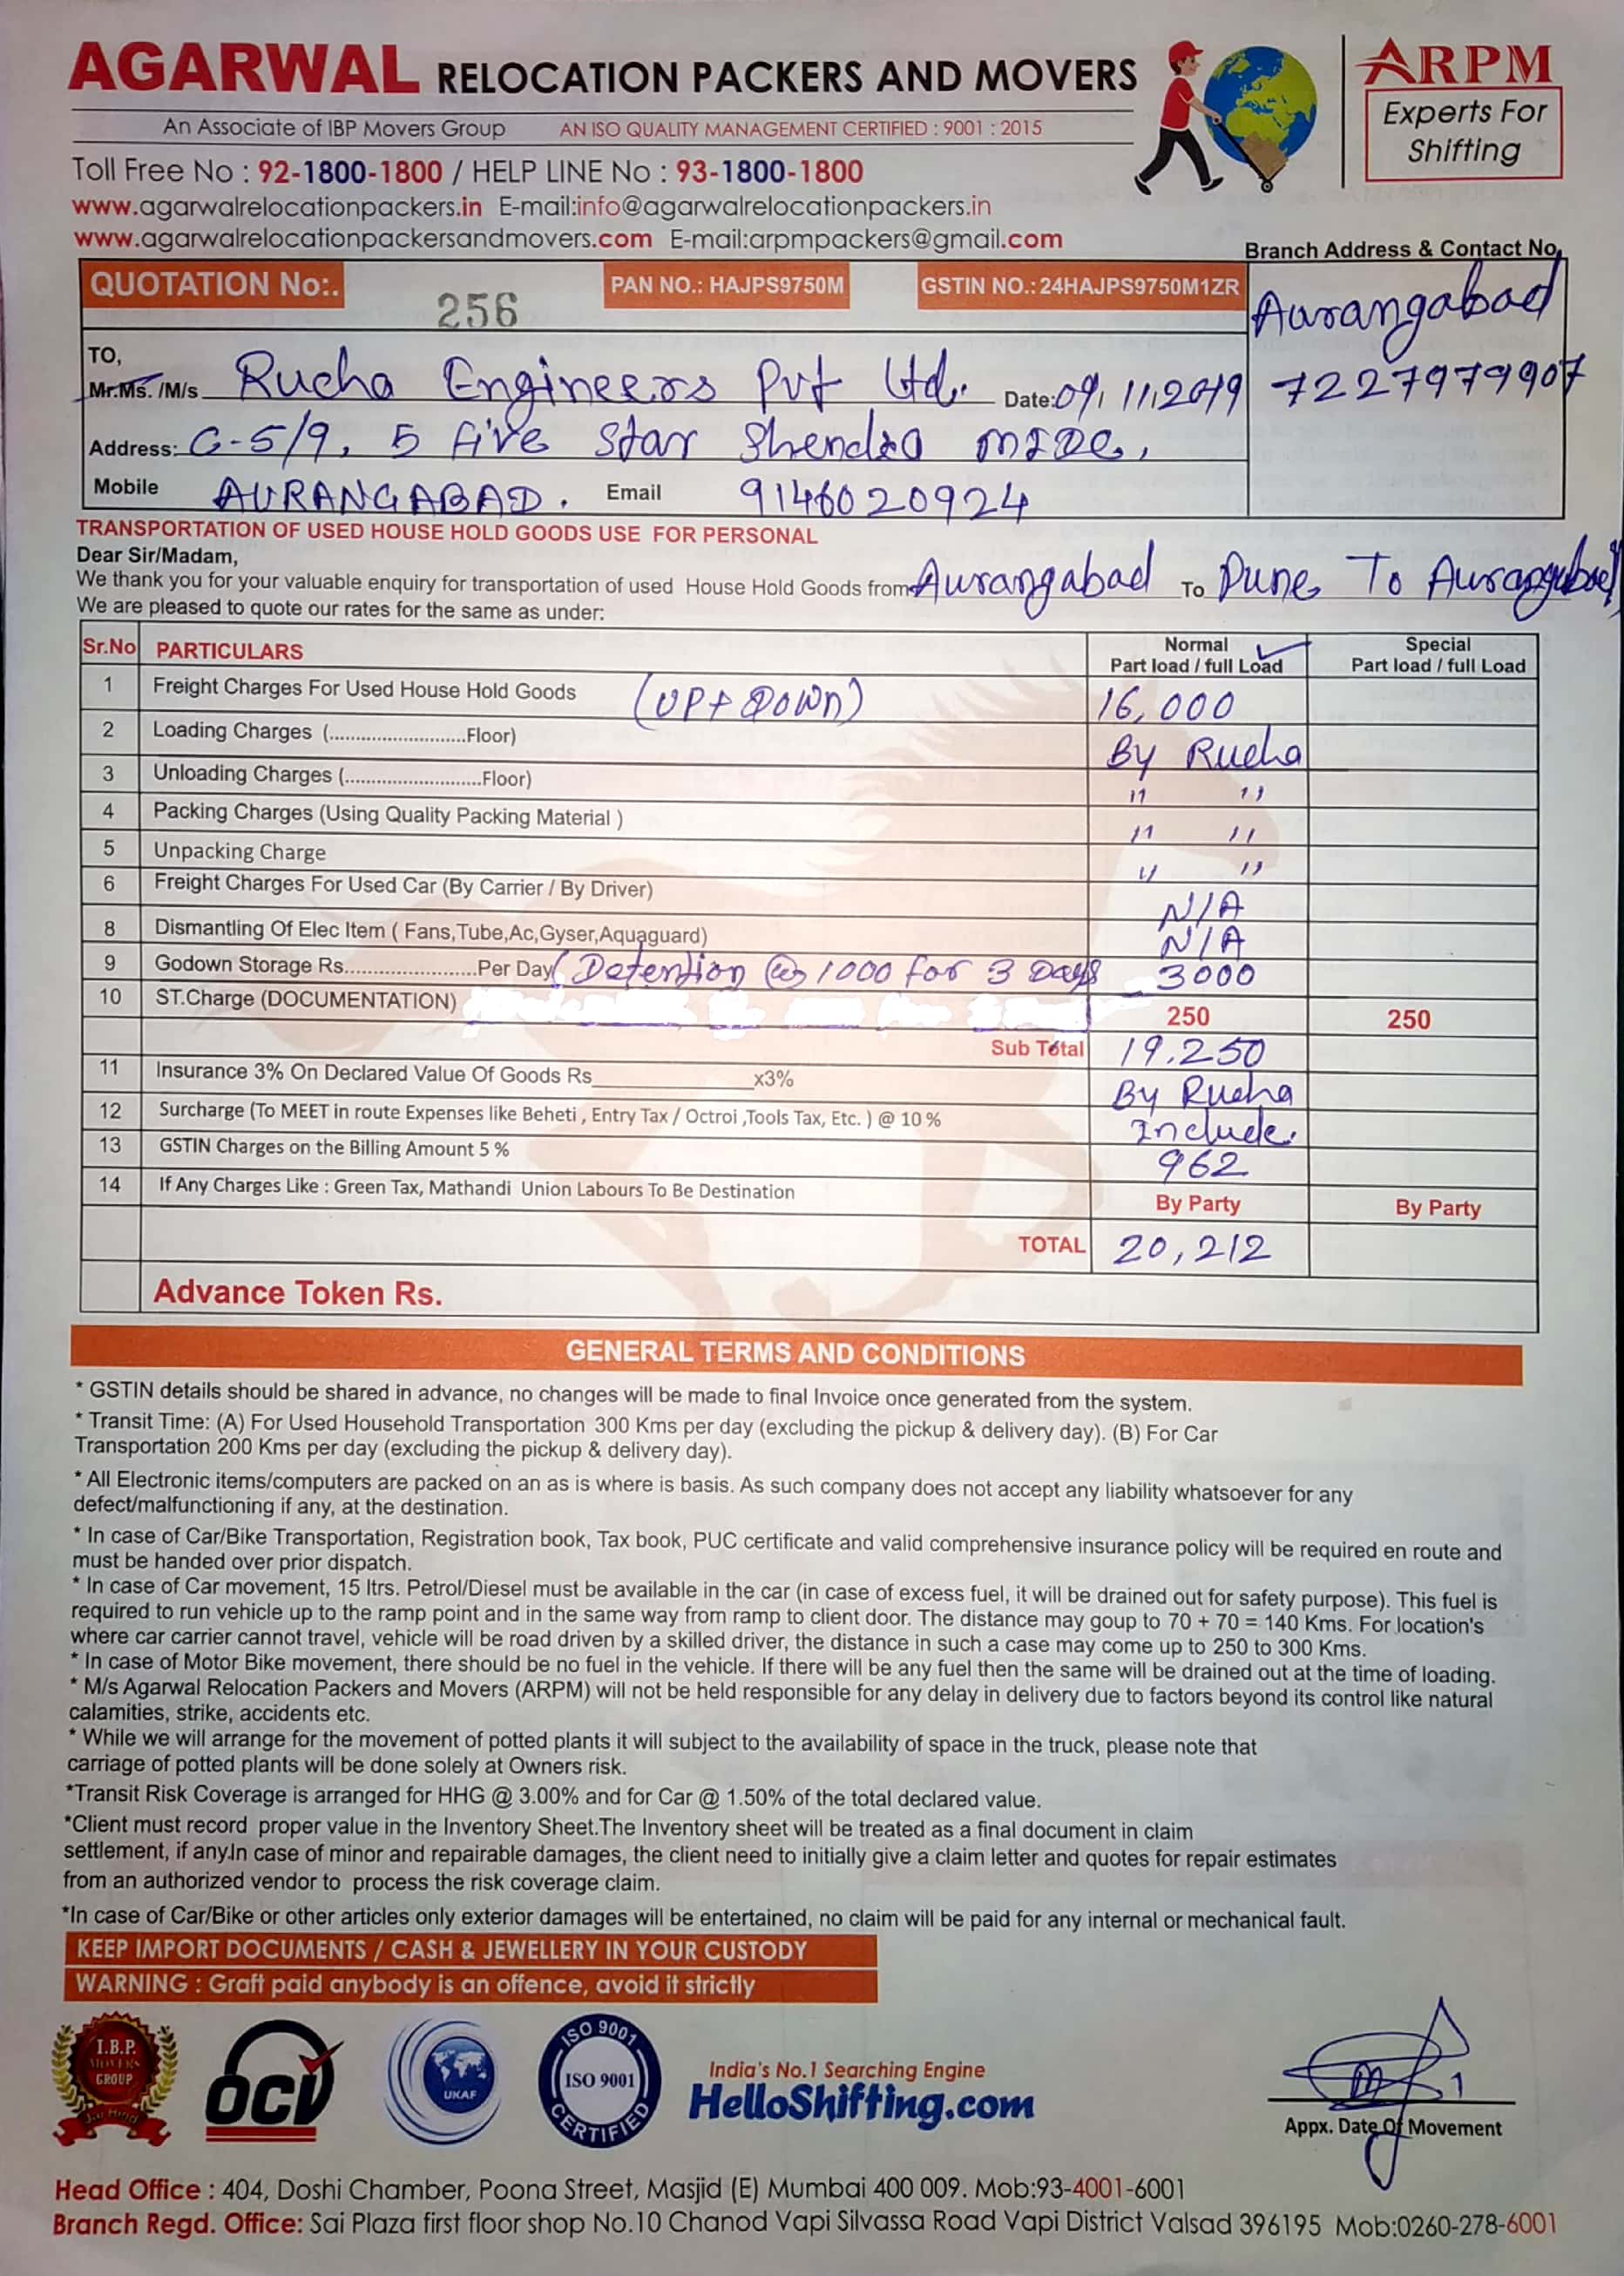 AGARWAL RELOCATION PACKERS AND MOVERS
ARPM
Experts For
Shifting
An Associate of IBP Movers Group AN ISO QUALITY MANAGEMENT CERTIFIED : 9001 : 2015
Toll Free No : 92-1800-1800 / HELP LINE No : 93-1800-1800
www.agarwalrelocationpackers.in E-mail:info@agarwalrelocationpackers.in
www.agarwalrelocationpackersandmovers.com E-mail:arpmpackers@gmail.com
Branch Address & Contact No.
QUOTATION No:. 256 PAN NO.: HAJPS9750M GSTIN NO.:24HAJPS9750M1ZR
Aurangabad
7227979907
TO,
Mr.Ms. /M/s. Rucha Engineers Pvt Ltd. Date:09/11/2019
Address: C-5/9, 5 five star Shendra MIDC,
Mobile AURANGABAD. Email 9146020924
TRANSPORTATION OF USED HOUSE HOLD GOODS USE FOR PERSONAL
Dear Sir/Madam,
We thank you for your valuable enquiry for transportation of used House Hold Goods from Aurangabad To Pune To Aurangabad
We are pleased to quote our rates for the same as under:
Sr.No PARTICULARS Normal Part load / full Load Special Part load / full Load
1 Freight Charges For Used House Hold Goods (UP+DOWN) 16,000
2 Loading Charges (..........................Floor) By Rucha
3 Unloading Charges (..........................Floor) " "
4 Packing Charges (Using Quality Packing Material ) " "
5 Unpacking Charge " "
6 Freight Charges For Used Car (By Carrier / By Driver) N/A
8 Dismantling Of Elec Item ( Fans,Tube,Ac,Gyser,Aquaguard) N/A
9 Godown Storage Rs.........................Per Day (Detention @ 1000 for 3 Days 3000
10 ST.Charge (DOCUMENTATION) 250 250
Sub Total 19.250
11 Insurance 3% On Declared Value Of Goods Rs______________x3% By Rucha
12 Surcharge (To MEET in route Expenses like Beheti , Entry Tax / Octroi ,Tools Tax, Etc. ) @ 10 % Include.
13 GSTIN Charges on the Billing Amount 5 % 962
14 If Any Charges Like : Green Tax, Mathandi Union Labours To Be Destination By Party By Party
TOTAL 20,212
Advance Token Rs.
GENERAL TERMS AND CONDITIONS
* GSTIN details should be shared in advance, no changes will be made to final Invoice once generated from the system.
* Transit Time: (A) For Used Household Transportation 300 Kms per day (excluding the pickup & delivery day). (B) For Car
Transportation 200 Kms per day (excluding the pickup & delivery day).
* All Electronic items/computers are packed on an as is where is basis. As such company does not accept any liability whatsoever for any
defect/malfunctioning if any, at the destination.
* In case of Car/Bike Transportation, Registration book, Tax book, PUC certificate and valid comprehensive insurance policy will be required en route and
must be handed over prior dispatch.
* In case of Car movement, 15 ltrs. Petrol/Diesel must be available in the car (in case of excess fuel, it will be drained out for safety purpose). This fuel is
required to run vehicle up to the ramp point and in the same way from ramp to client door. The distance may goup to 70 + 70 = 140 Kms. For location's
where car carrier cannot travel, vehicle will be road driven by a skilled driver, the distance in such a case may come up to 250 to 300 Kms.
* In case of Motor Bike movement, there should be no fuel in the vehicle. If there will be any fuel then the same will be drained out at the time of loading.
* M/s Agarwal Relocation Packers and Movers (ARPM) will not be held responsible for any delay in delivery due to factors beyond its control like natural
calamities, strike, accidents etc.
* While we will arrange for the movement of potted plants it will subject to the availability of space in the truck, please note that
carriage of potted plants will be done solely at Owners risk.
*Transit Risk Coverage is arranged for HHG @ 3.00% and for Car @ 1.50% of the total declared value.
*Client must record proper value in the Inventory Sheet.The Inventory sheet will be treated as a final document in claim
settlement, if any.In case of minor and repairable damages, the client need to initially give a claim letter and quotes for repair estimates
from an authorized vendor to process the risk coverage claim.
*In case of Car/Bike or other articles only exterior damages will be entertained, no claim will be paid for any internal or mechanical fault.
KEEP IMPORT DOCUMENTS / CASH & JEWELLERY IN YOUR CUSTODY
WARNING : Graft paid anybody is an offence, avoid it strictly
I.B.P. MOVERS GROUP Jai Hind
OCV
UKAF
ISO 9001 ISO 9001 CERTIFIED
India's No.1 Searching Engine
HelloShifting.com
Appx. Date Of Movement
Head Office : 404, Doshi Chamber, Poona Street, Masjid (E) Mumbai 400 009. Mob:93-4001-6001
Branch Regd. Office: Sai Plaza first floor shop No.10 Chanod Vapi Silvassa Road Vapi District Valsad 396195 Mob:0260-278-6001